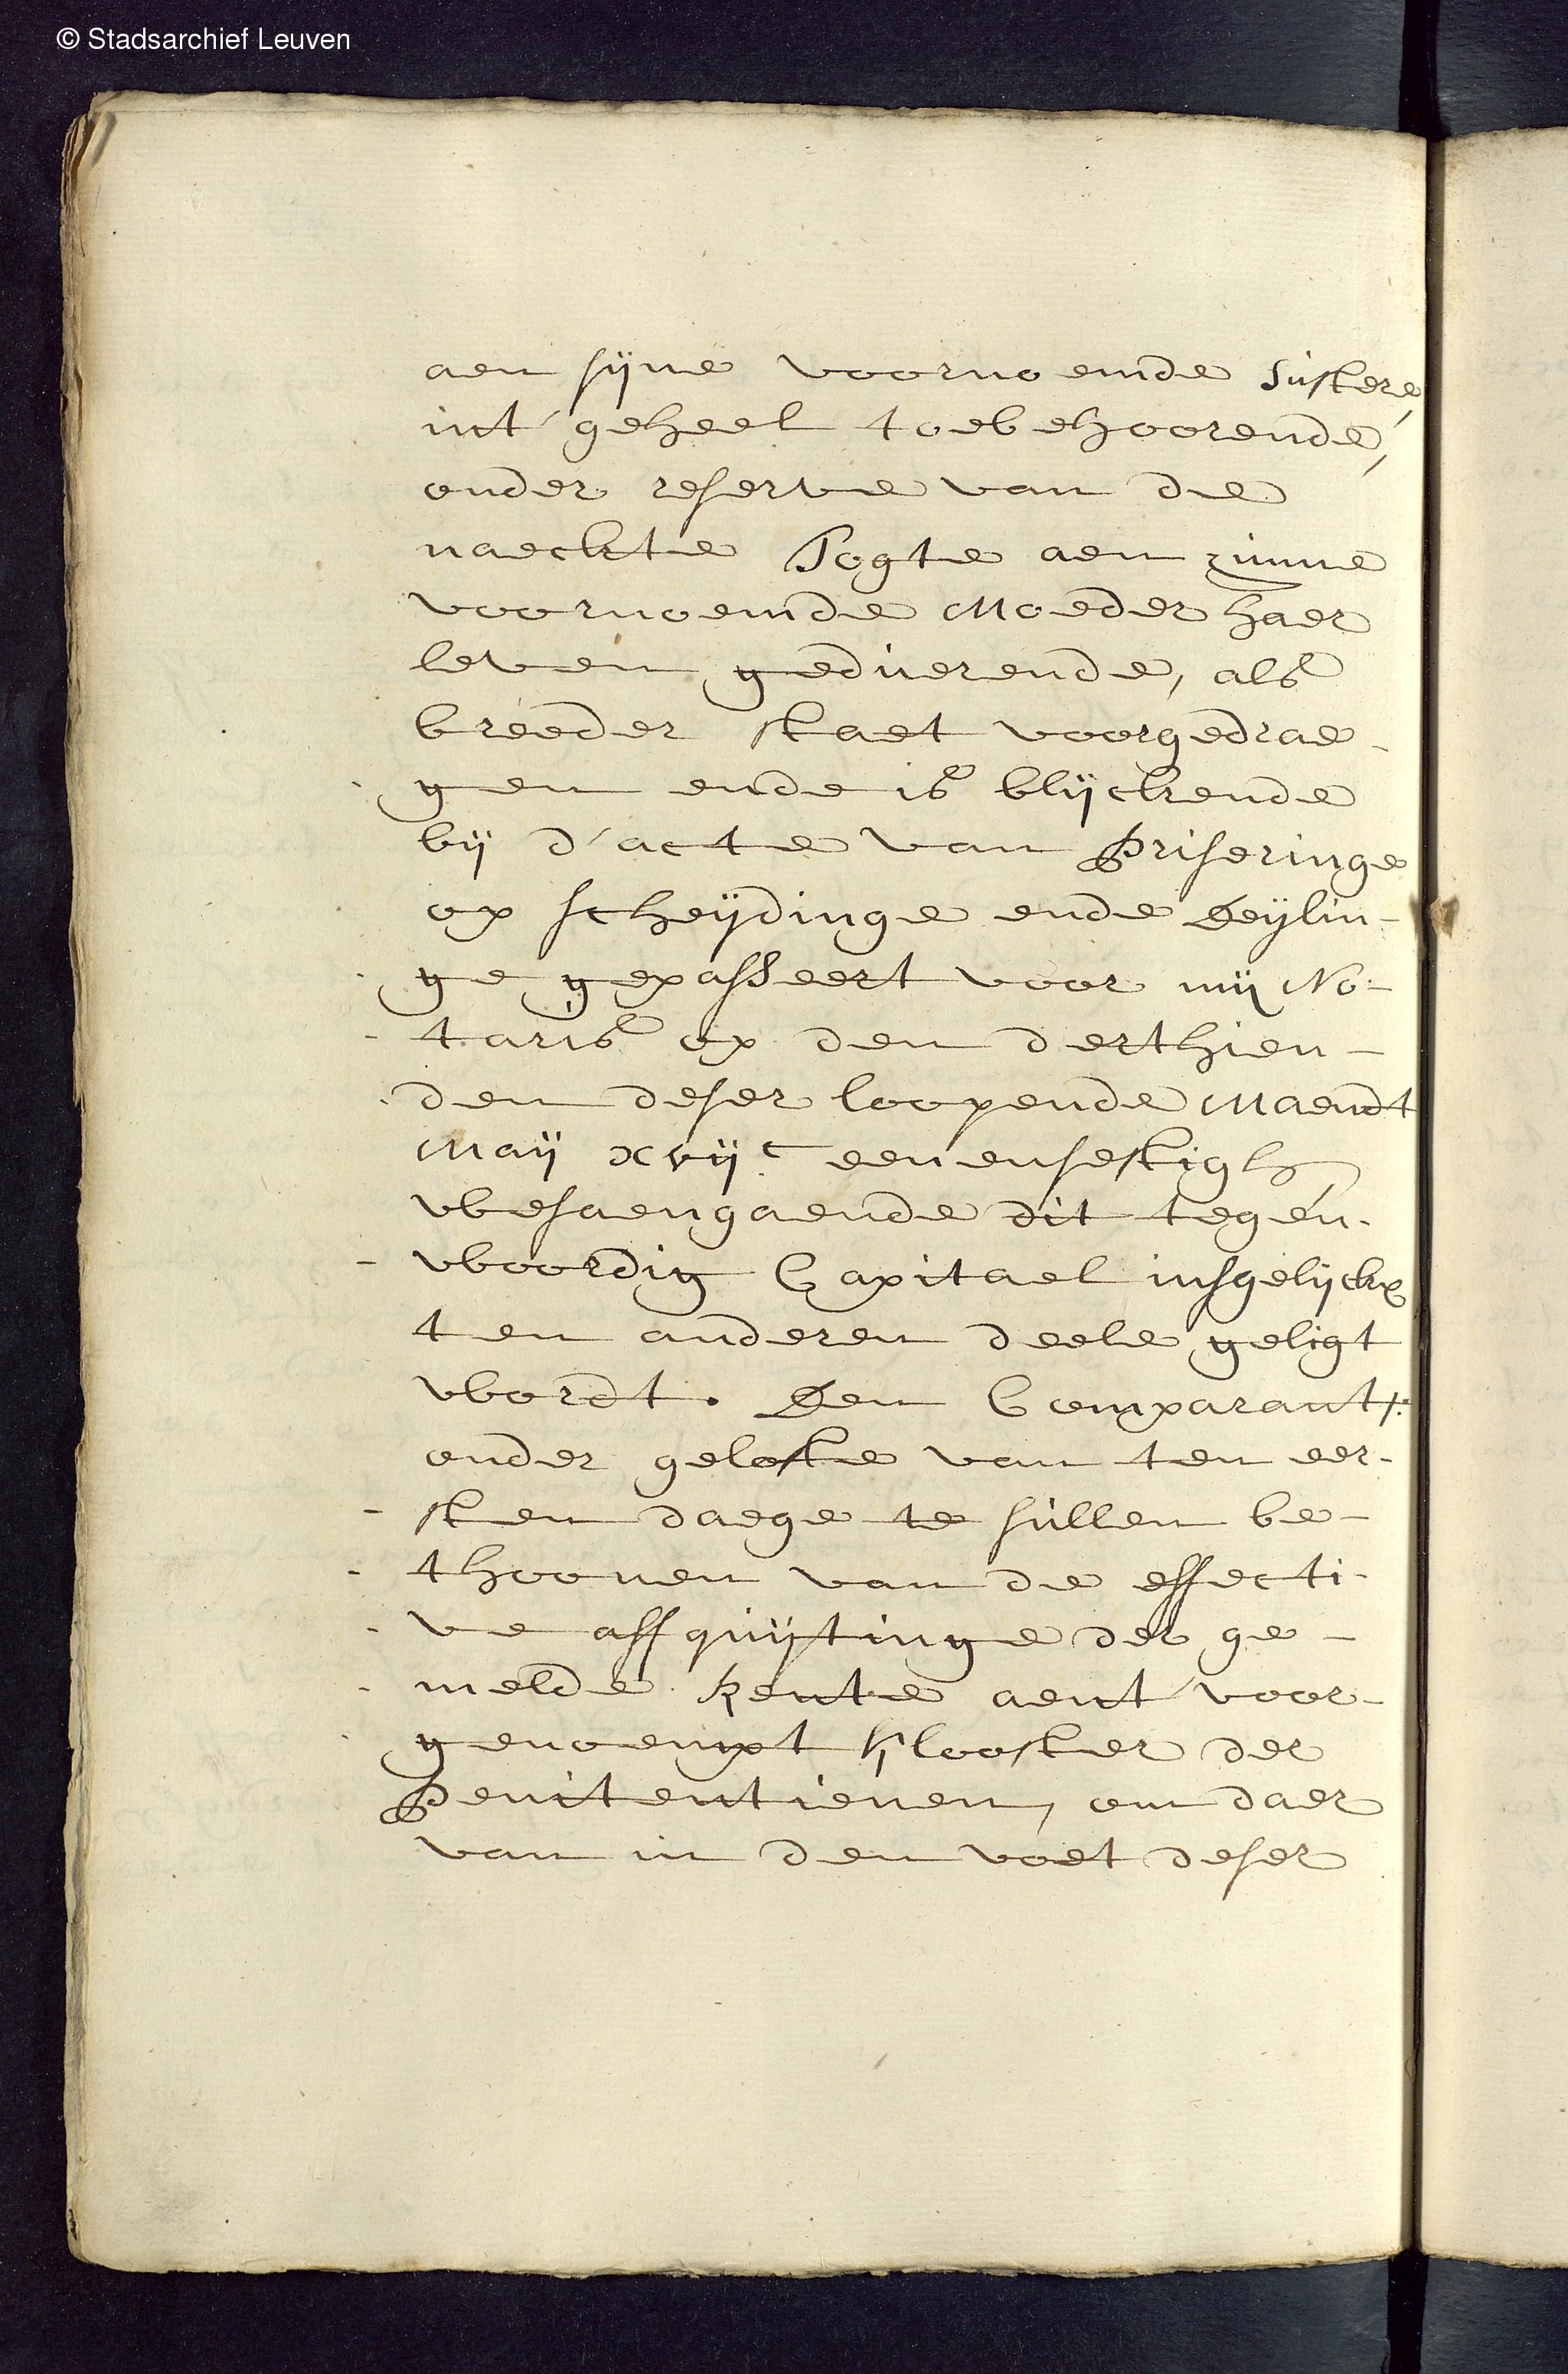 © Stadsarchief Leuven
aen sijne voornoemde sustere,
int' geheel toebehoorende,
onder reserve van de
naeckte Togte aen zijnne
voornoemde Moeder haer
leven geduerende, als
breeder staet voorgedrae-
gen ende is blijckende
bij d'acte van Priseringe
op scheijdinge ende Deijlin-
ge gepasseert voor mij No-
taris op den derthien-
den deser loopende Maendt
Maij xvijc eenensestigh
wesaengaende dit tegen-
woordig Capitael insgelijckx
ten anderen deele geligt
wordt. Den Comparant
onder gelofte van ten eer-
sten daege te sullen be-
thoonen van de effecti-
ve affquijtinge der ge-
melde Rente aent' voor-
genoempt Klooster der
Penitentienen, om daer
van in den voet deser